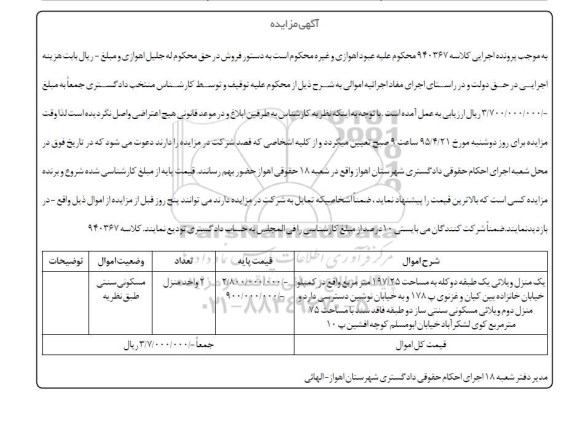 آگهی مزایده
به موجب پرونده اجرایی کلاسه ۹۴۰۳۶۷ محکوم علیه عبود اهوازی و غیره محکوم است به دستور فروش در حق محکوم له جلیل اهوازی و مبلغ - ریال بابت هزینه
اجرایی در حق دولت و در راستای اجرای مفاد اجرائیه اموالی به شرح ذیل از محکوم علیه توقیف و توسط کارشناس منتخب دادگستری جمعاً به مبلغ
-/۳/۷۰۰/۰۰۰/۰۰۰ ریال ارزیابی به عمل آمده است. با توجه به اینکه نظریه کارشناس به طرفین ابلاغ و در موعد قانونی هیچ اعتراضی واصل نگردیده است لذا وقت
مزایده برای روز دوشنبه مورخ ۹۵/۴/۲۱ ساعت ۹ صبح تعیین میگردد و از کلیه اشخاصی که قصد شرکت در مزایده را دارند دعوت می شود که در تاریخ فوق در
محل شعبه اجرای احکام حقوقی دادگستری شهرستان اهواز واقع در شعبه ۱۸ حقوقی اهواز حضور بهم رسانند. قیمت پایه از مبلغ کارشناسی شده شروع و برنده
مزایده کسی است که بالاترین قیمت را پیشنهاد نماید، ضمناً اشخاصیکه تمایل به شرکت در مزایده دارند می توانند پنج روز قبل از مزایده از اموال ذیل واقع - در
بازدید نمایند. ضمناً شرکت کنندگان می بایستی ۱۰ درصد از مبلغ کارشناسی را فی المجلس به حساب دادگستری تودیع نمایند. کلاسه ۹۴۰۳۶۷
شرح اموال قیمت پایه تعداد وضعیت اموال توضیحات
یک منزل ویلائی یک طبقه دو کله به مساحت ۱۹۷/۲۵ متر مربع واقع در کمپلو -/۲/۸۰۰/۰۰۰/۰۰۰ ۲ واحد منزل مسکونی سنتی
خیابان خانزاده بین کیان و غزنوی پ ۱۷۸ و به خیابان نوشین دسترسی دارد و -/۹۰۰/۰۰۰/۰۰۰ طبق نظریه
منزل دوم ویلائی مسکونی سنتی ساز دو طبقه فاقد سند با مساحت ۷۵
متر مربع کوی لشکر آباد خیابان ابومسلم کوچه افشین پ ۱۰
قیمت کل اموال جمعاً -/۳/۷/۰۰۰/۰۰۰ ریال
مدیر دفتر شعبه ۱۸ اجرای احکام حقوقی دادگستری شهرستان اهواز - الهائی
ParsNamadData
۰۲۱-۸۸۳۴۹۶۷۰